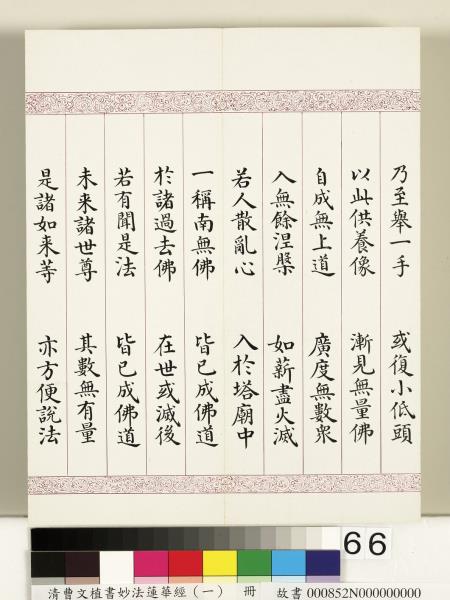 乃至舉一手　或復小低頭
以此供養像　漸見無量佛
自成無上道　廣度無數衆
入無餘涅槃　如薪盡火滅
若人散亂心　入於塔廟中
一稱南無佛　皆已成佛道
於諸過去佛　在世或滅後
若有聞是法　皆已成佛道
未来諸世尊　其數無有量
是諸如来等　亦方便說法
66
清曹文植書妙法蓮華經（一）　冊　故書 000852N000000000